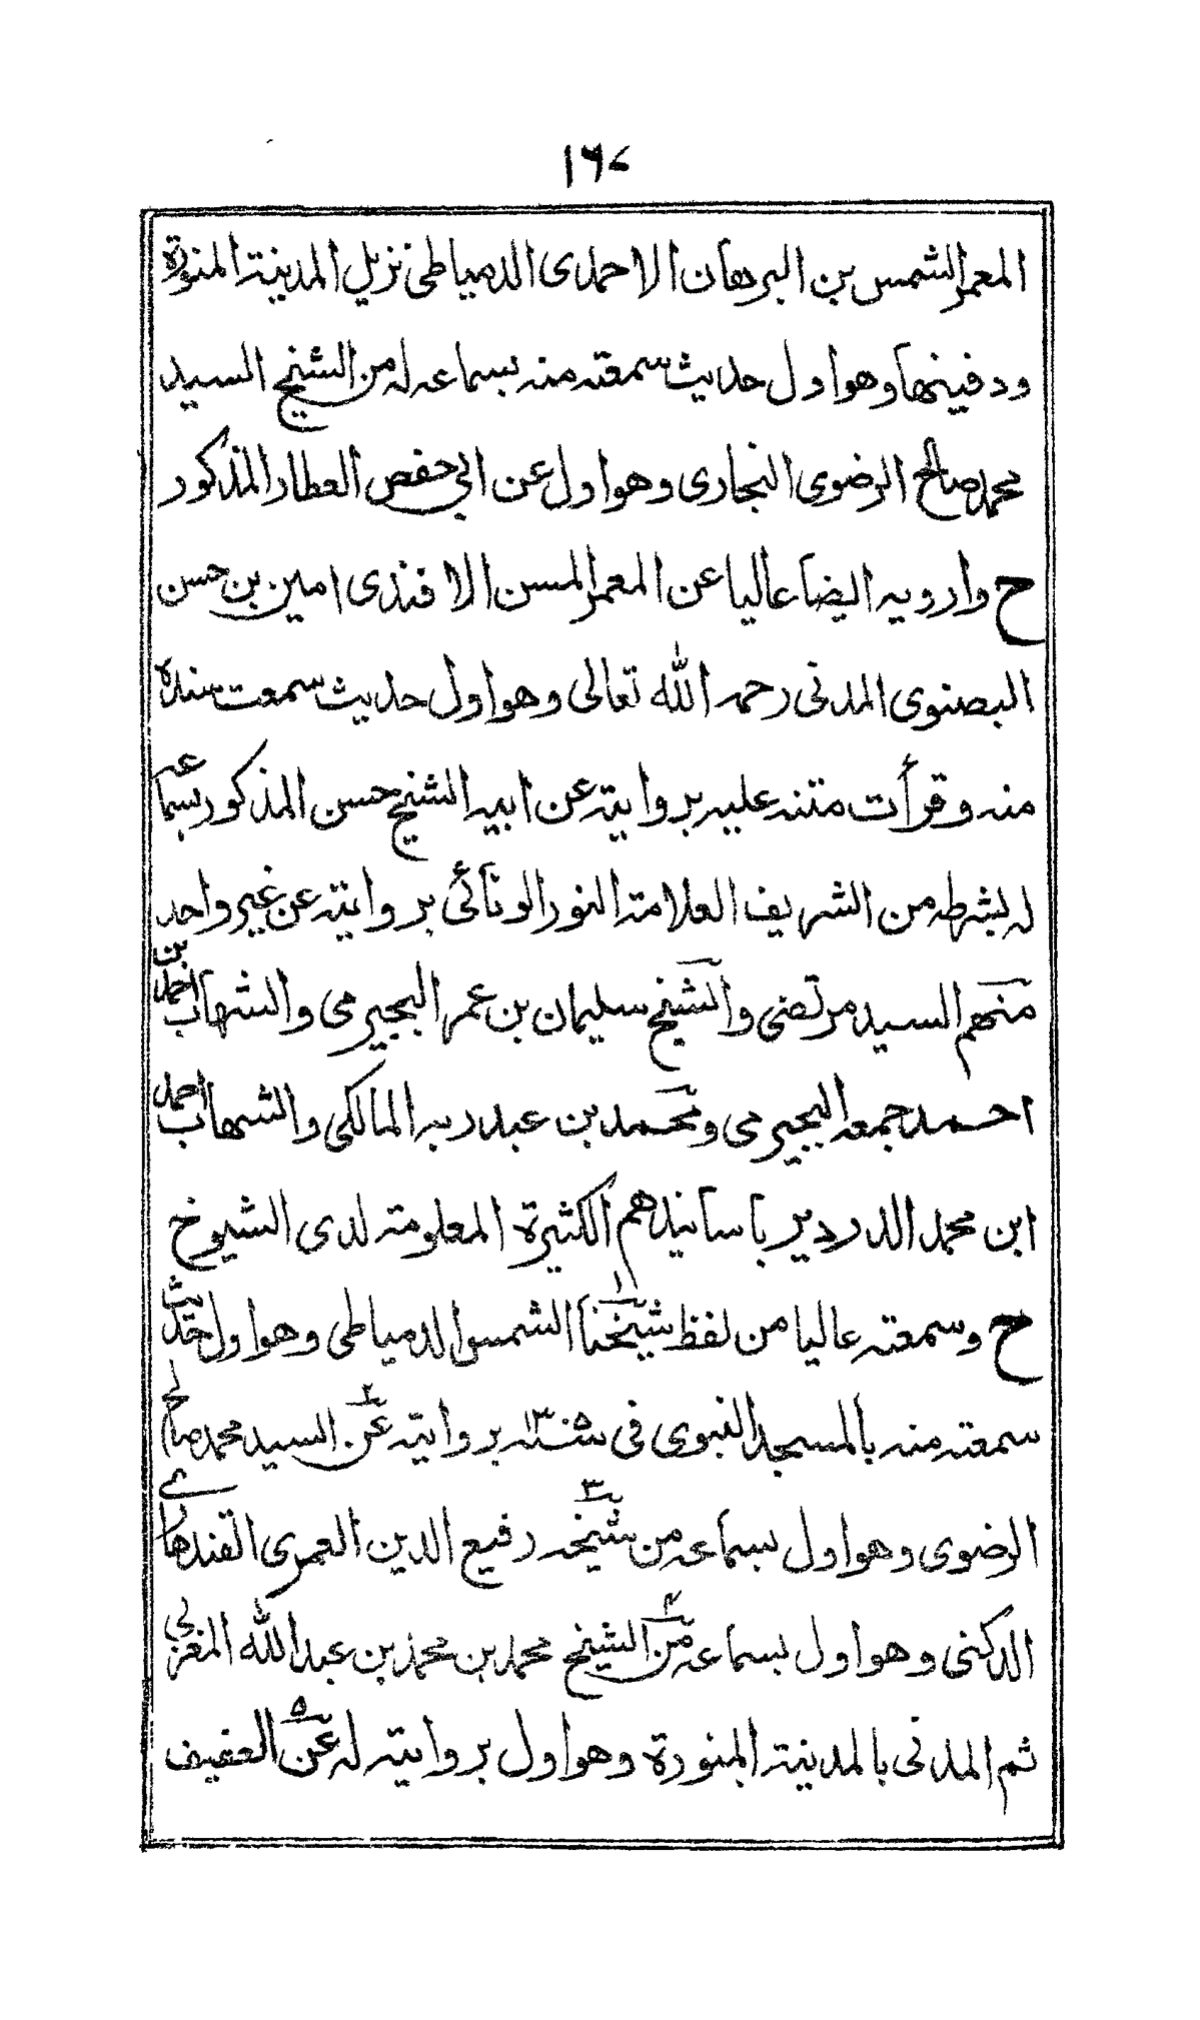 ١٦٧
المعمر الشمس بن البرهان الاحمدى الدمياطى نزيل المدينة المنورة
ودفينها وهو اول حديث سمعته منه بسماعه له من الشيخ السيد
محمد صالح الرضوى البخارى وهو اول عن ابي حفص العطار المذكور
ح وارويه ايضا عاليا عن المعمر المسن الافندى امين بن حسن
البصنوى المدنى رحمه الله تعالى وهو اول حديث سمعت سنده
منه وقرأت متنه عليه بروايته عن ابيه الشيخ حسن المذكور بسماعه
له بشرطه من الشريف العلامة النور الونائى بروايته عن غير واحد
منهم السيد مرتضى والشيخ سليمان بن عمر البجيرمى والشهاب احمد بن
احمد جمعه البجيرمى ومحمد بن عبد ربه المالكى والشهاب احمد
ابن محمد الدردير باسانيدهم الكثيرة المعلومة لدى الشيوخ
ح وسمعته عاليا من لفظ شيخنا١ الشمس الدمياطى وهو اول حديث
سمعته منه بالمسجد النبوى فى سنة ١٣٠٥ بروايته عن٢ السيد محمد صالح
الرضوى وهو اول بسماعه من شيخه٣ رفيع الدين العمرى القندهارے
الدكنى وهو اول بسماعه من٤ الشيخ محمد بن محمد بن عبد الله المغربي
ثم المدنى بالمدينة المنورة وهو اول بروايته له عن٥ العفيف